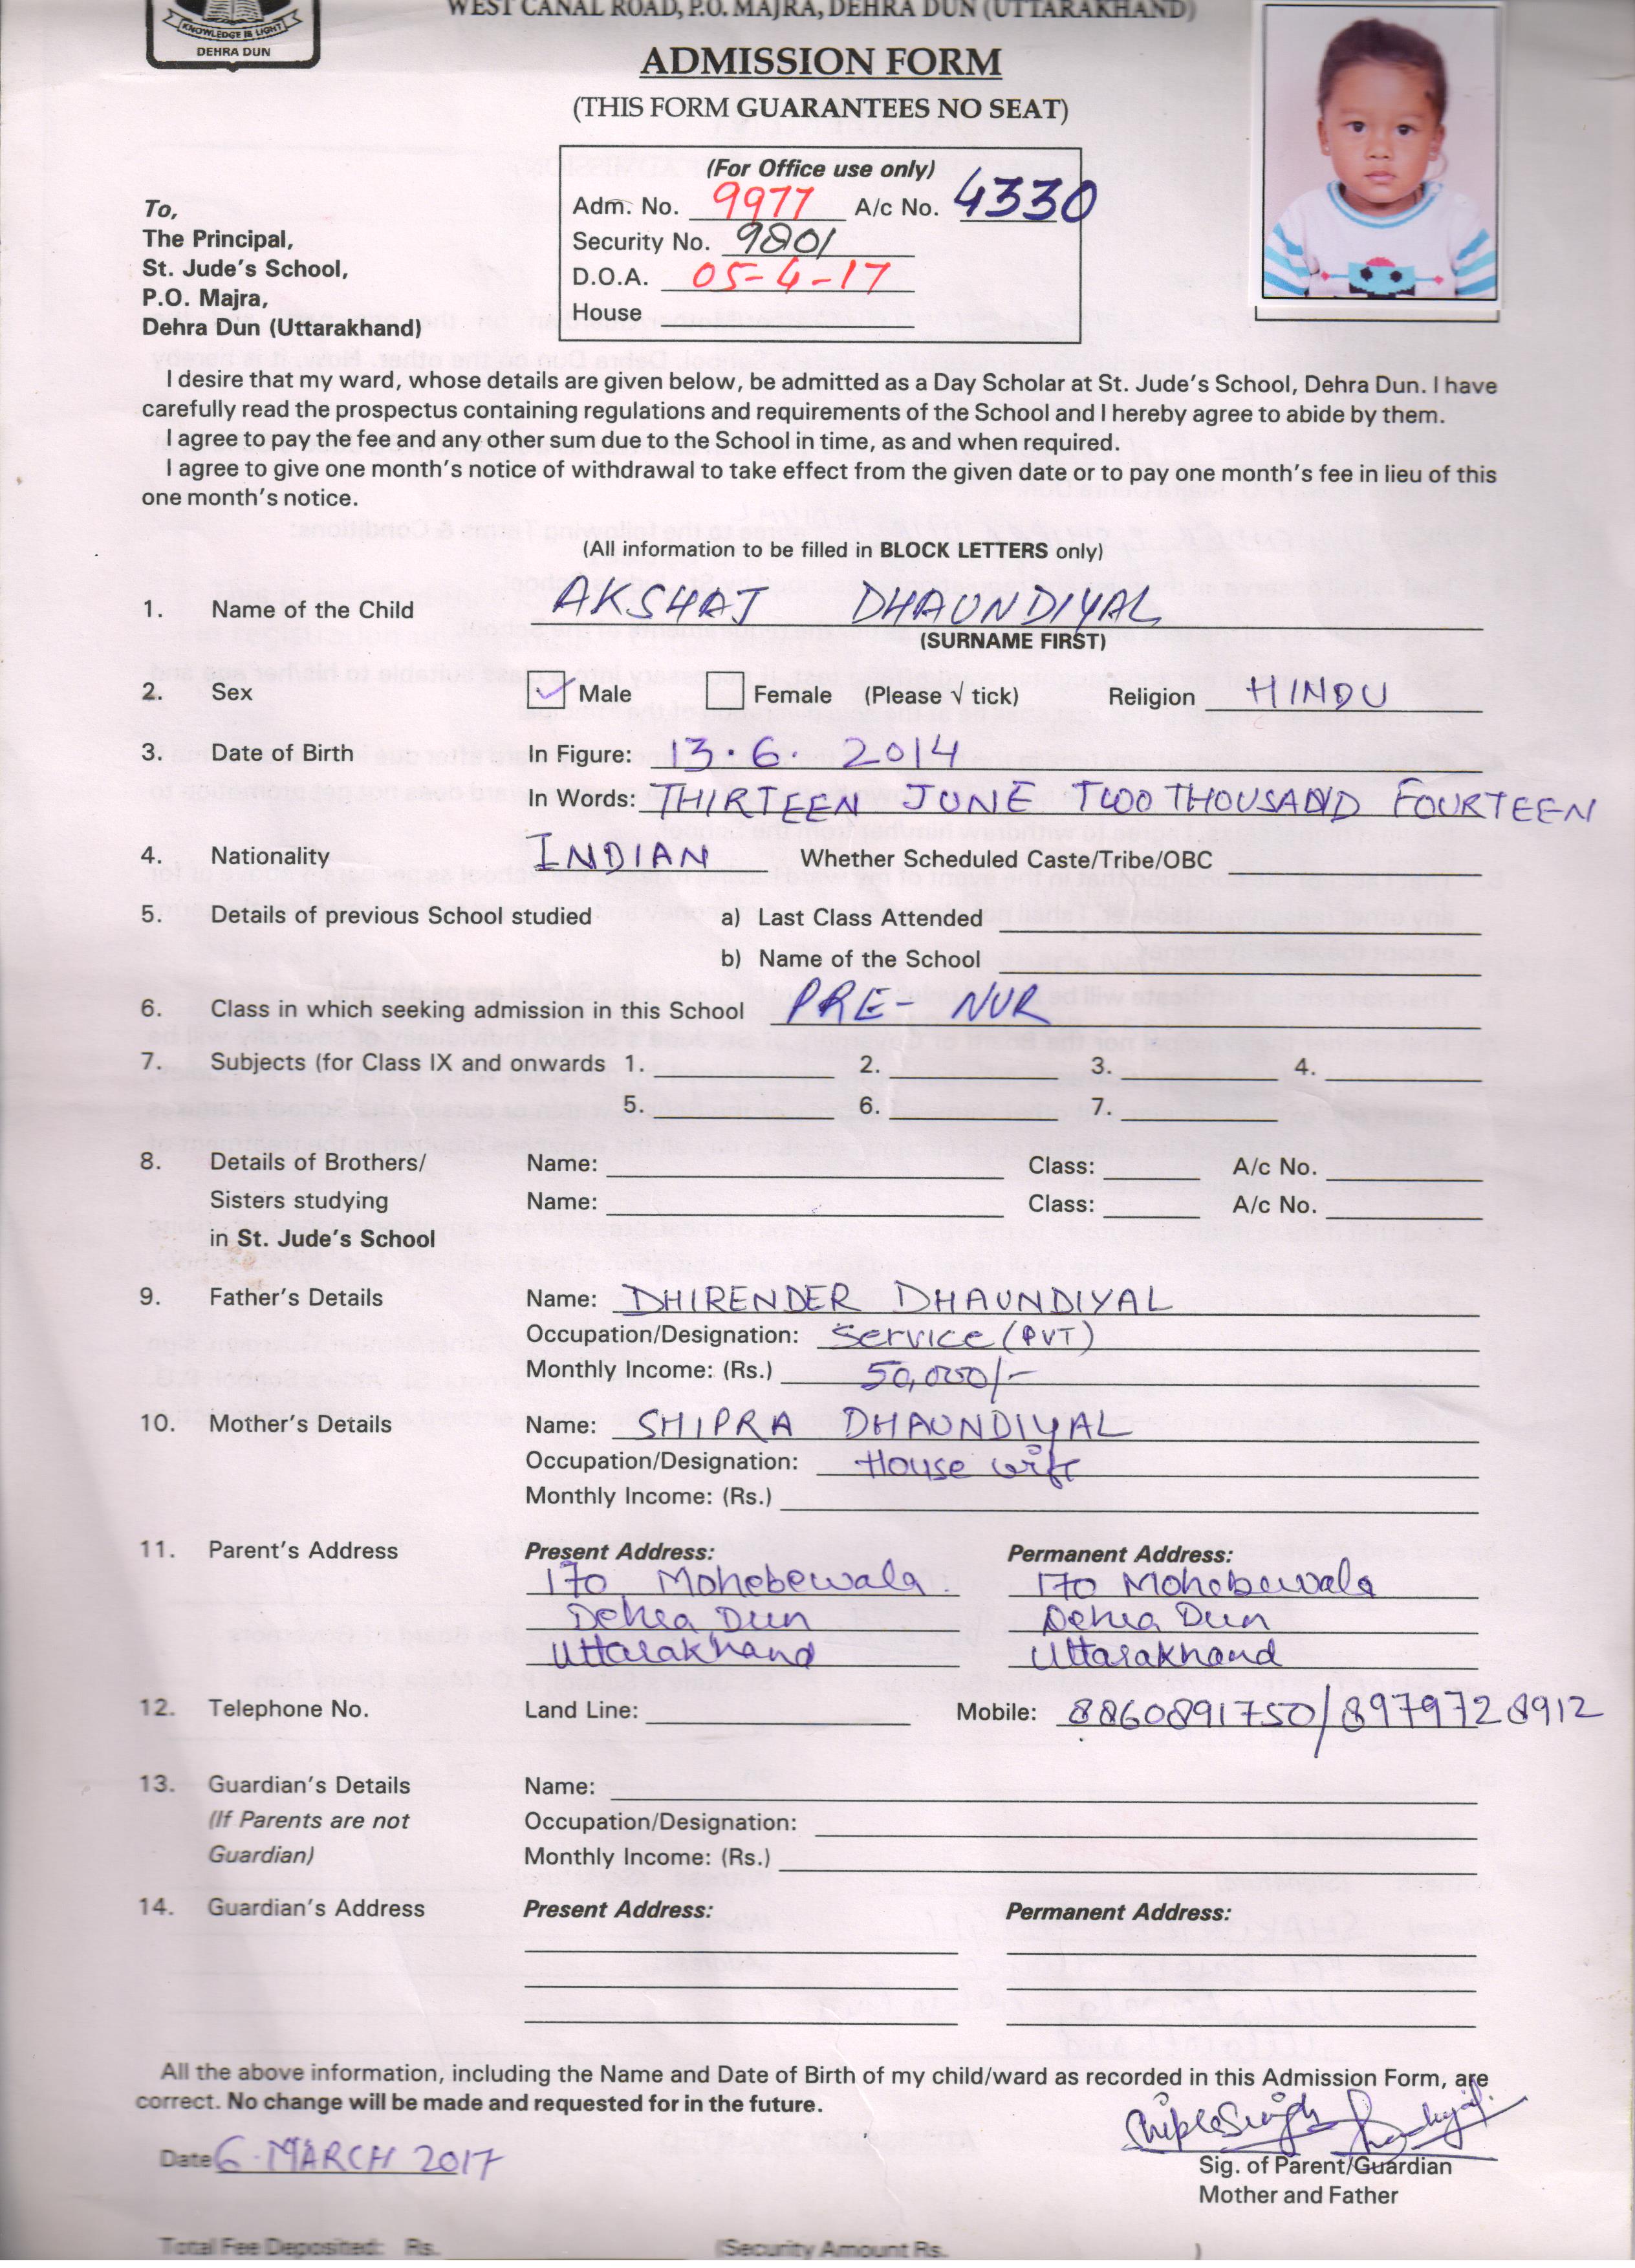 WEST CANAL ROAD, P.O. MAJRA, DEHRA DUN (UTTARAKHAND)
KNOWLEDGE IS LIGHT
DEHRA DUN
ADMISSION FORM
(THIS FORM GUARANTEES NO SEAT)
(For Office use only)
Adm. No. 9977 A/c No. 4330
Security No. 9801
D.O.A. 05-4-17
House
To,
The Principal,
St. Jude's School,
P.O. Majra,
Dehra Dun (Uttarakhand)
I desire that my ward, whose details are given below, be admitted as a Day Scholar at St. Jude's School, Dehra Dun. I have
carefully read the prospectus containing regulations and requirements of the School and I hereby agree to abide by them.
I agree to pay the fee and any other sum due to the School in time, as and when required.
I agree to give one month's notice of withdrawal to take effect from the given date or to pay one month's fee in lieu of this
one month's notice.
(All information to be filled in BLOCK LETTERS only)
1. Name of the Child AKSHAJ DHAUNDIYAL
(SURNAME FIRST)
2. Sex Male Female (Please √ tick) Religion HINDU
3. Date of Birth In Figure: 13.6. 2014
In Words: THIRTEEN JUNE TWO THOUSAND FOURTEEN
4. Nationality INDIAN Whether Scheduled Caste/Tribe/OBC
5. Details of previous School studied a) Last Class Attended
b) Name of the School
6. Class in which seeking admission in this School PRE- NUR
7. Subjects (for Class IX and onwards 1. 2. 3. 4.
5. 6. 7.
8. Details of Brothers/ Name: Class: A/c No.
Sisters studying Name: Class: A/c No.
in St. Jude's School
9. Father's Details Name: DHIRENDER DHAUNDIYAL
Occupation/Designation: Service (PVT)
Monthly Income: (Rs.) 50,000/-
10. Mother's Details Name: SHIPRA DHAUNDIYAL
Occupation/Designation: House wife
Monthly Income: (Rs.)
11. Parent's Address Present Address: Permanent Address:
170 Mohebewala 170 Mohebewala
Dehra Dun Dehra Dun
Uttarakhand Uttarakhand
12. Telephone No. Land Line: Mobile: 8860891750/8979728912
13. Guardian's Details Name:
(If Parents are not Occupation/Designation:
Guardian) Monthly Income: (Rs.)
14. Guardian's Address Present Address: Permanent Address:
All the above information, including the Name and Date of Birth of my child/ward as recorded in this Admission Form, are
correct. No change will be made and requested for in the future.
Date 6. MARCH 2017
Sig. of Parent/Guardian
Mother and Father
Total Fee Deposited: Rs. (Security Amount Rs. )